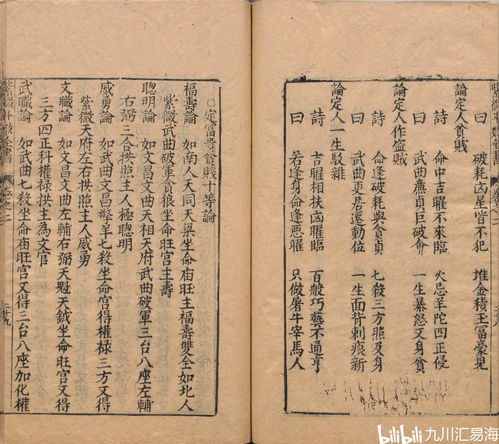 破耗凶星皆不犯　堆金積玉富豪兒
論定人貧賤
詩　命中吉曜不來臨　火忌羊陀四正侵
曰　武曲廉貞巨破會　一生暴怒及身貧
論定人作盜賊
詩　命逢破耗與貪貞　七殺三方照及身
曰　武曲更居遷動位　一生面背刺痕新
論定人一生駁雜
詩　吉曜相扶凶曜臨　百般巧藝不通亨
曰　若逢身命逢惡曜　只做屠牛宰馬人
○定富貴貧賤十等論
福壽論　如南人天同天梁坐命廟旺主福壽雙全如北人
紫微武曲破軍貪狼坐命旺宮主壽
聰明論　如文昌文曲天相天府武曲破軍三台八座左輔
右弼三合拱照主人極聰明
威勇論　如武曲文昌擎羊七殺坐命宮得權祿三方又得
紫微天府左右拱照主人威勇
文職論　如文昌文曲左輔右弼天魁天鉞坐命旺宮又得
三方四正科權祿拱主為文官
武職論　如武曲七殺坐命廟旺宮又得三台八座加化權
卷之二
二十九
bilibili 九川汇易海